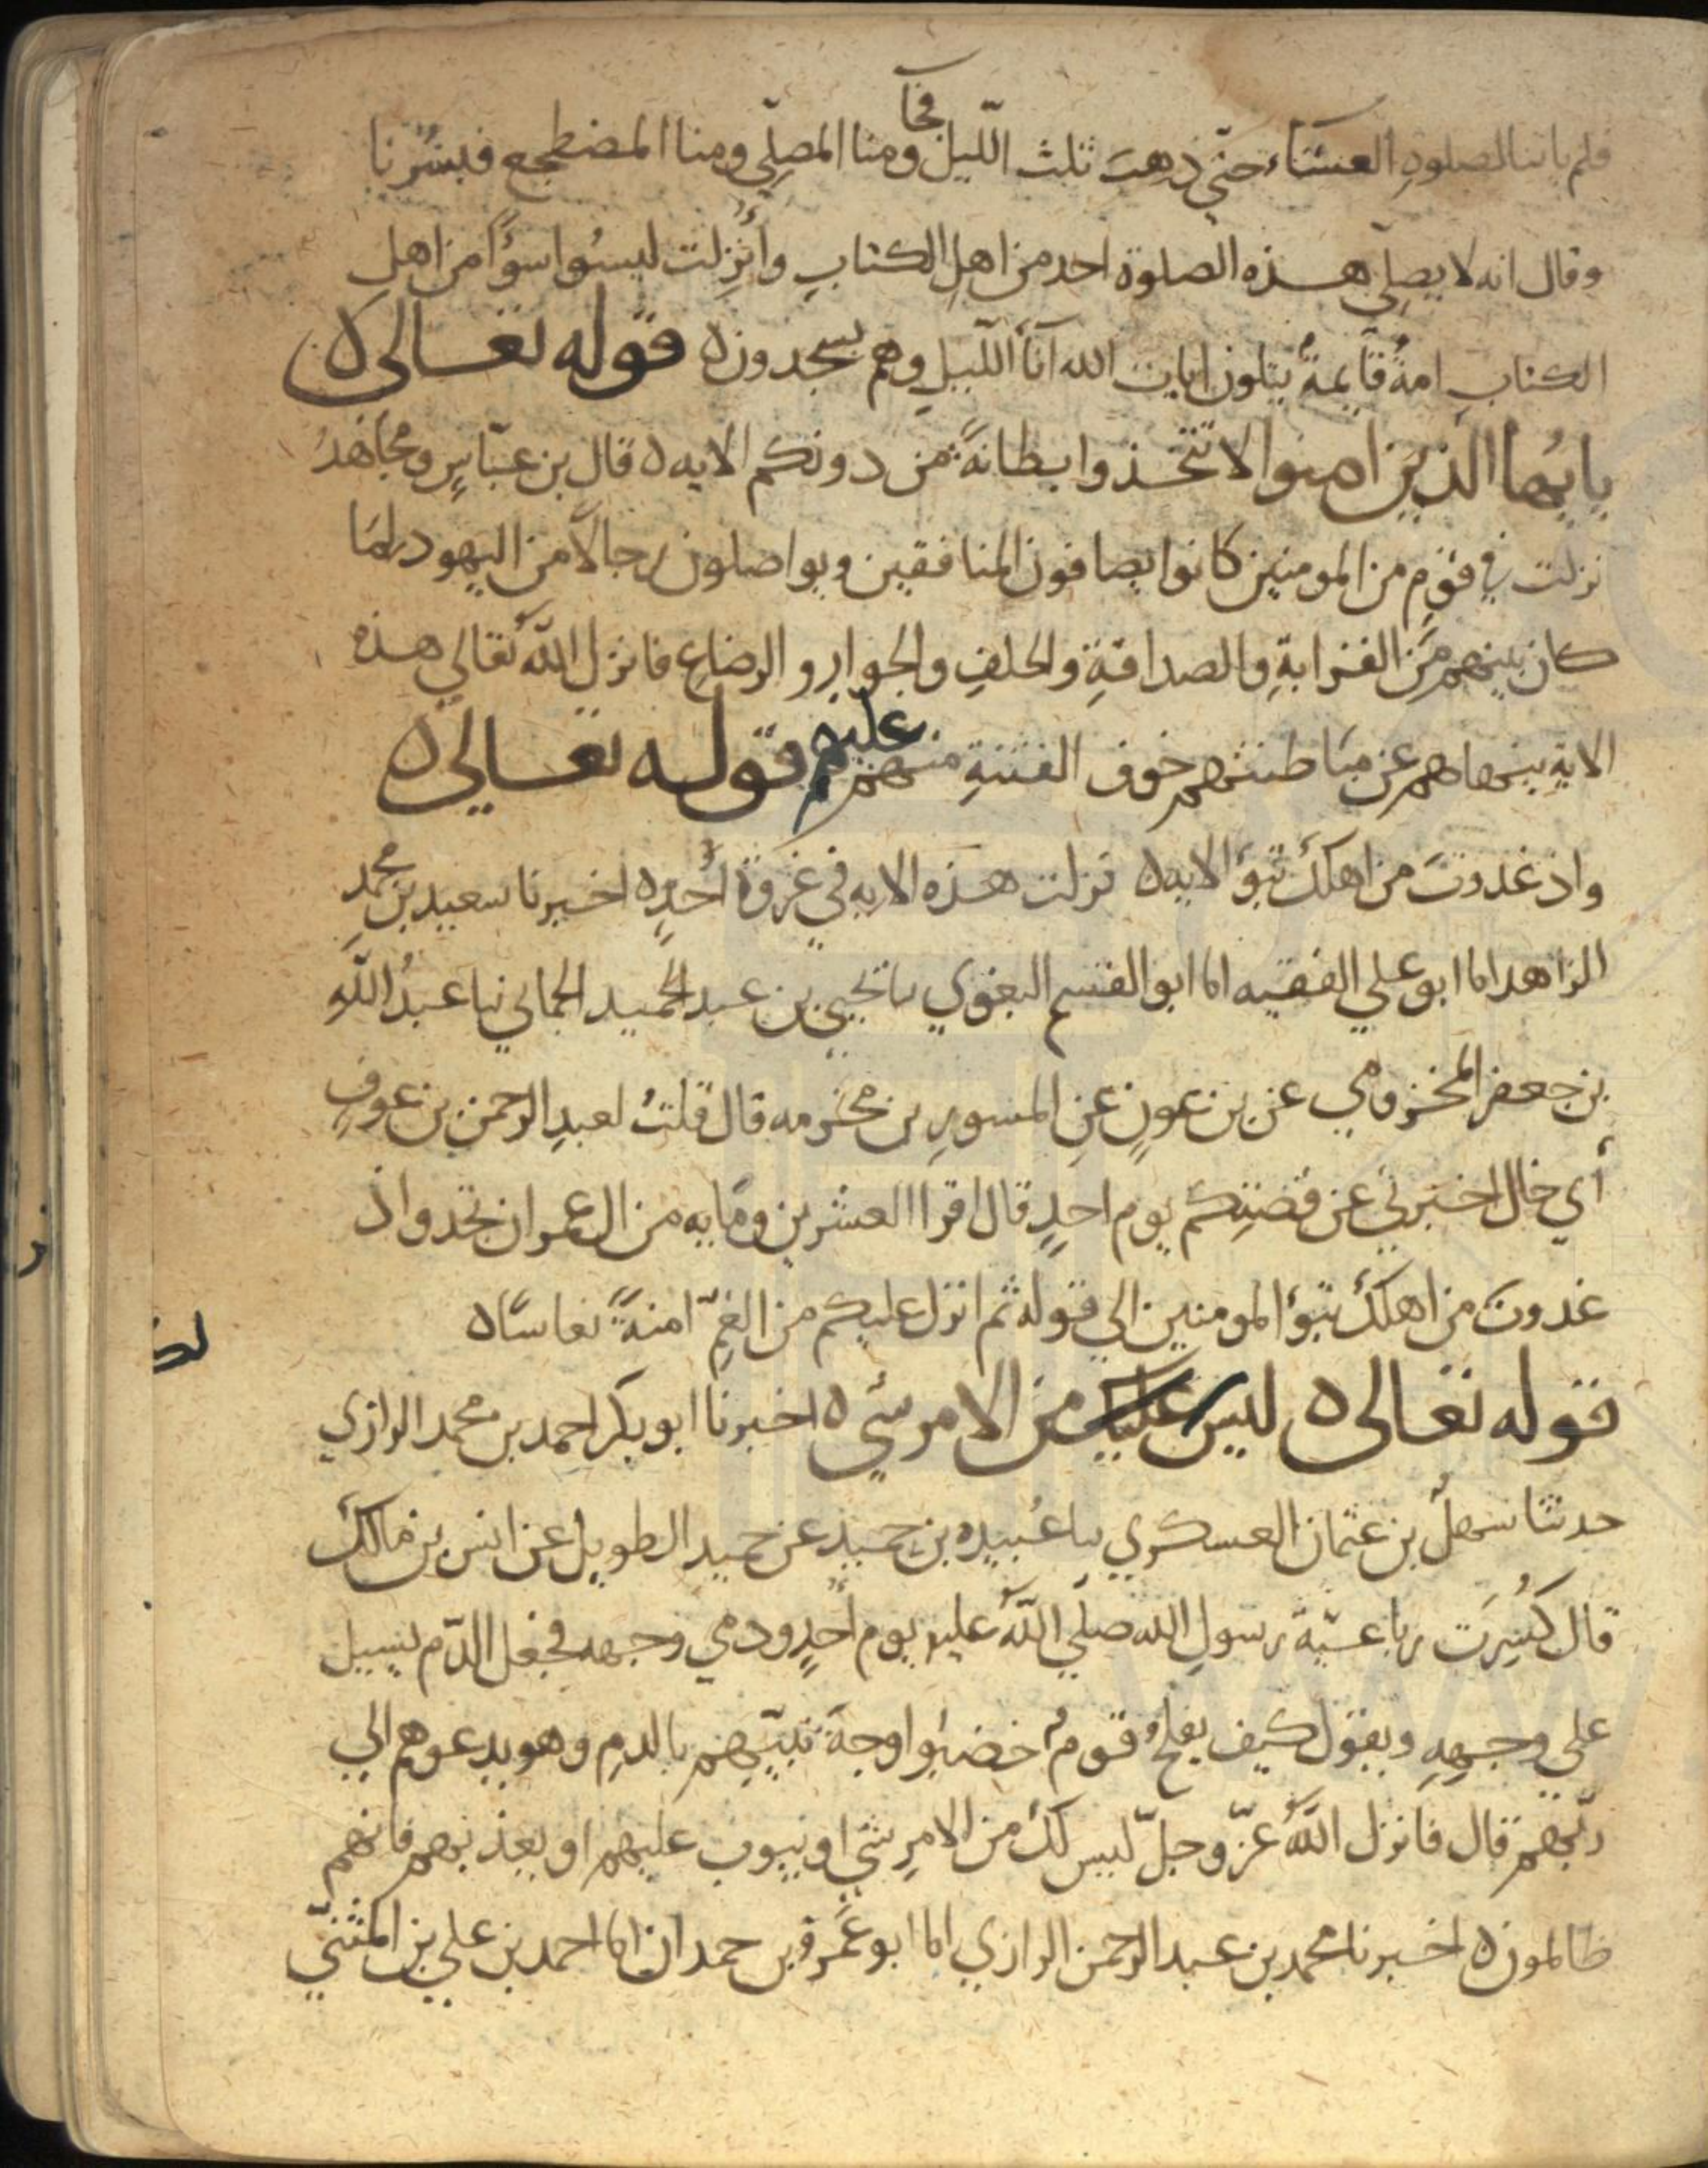 فلم ياتنا لصلوةِ العشآء حتّي ذهبَ ثلث اللّيل فجآ ومنا المصلّي ومنا المضطجع فبشّرنا
وقال انه لا يصلّي هذه الصلوة احد من اهل الكتابِ وأُنزِلت ليسُوا سوًآ من اهل
الكتابِ امةٌ قآيمةٌ يتلون ايات الله انآ اللّيلِ وهم يسجدون ه قوله تعالى ه
يايُها الذين امنوا لا تتخذوا بطانةً من دونكم الايه ه قال بن عبّاسٍ ومجاهدُ
نزلت في قومٍ من المومنين كانوا يصافون المنافقين ويواصلون رجالًا من اليهود لما
كان بينهم من القرابةِ والصداقةِ والحلفِ والجوارِ والرضاعِ فانزل اللّه تعالي هذه
الاية ينهاهم عن مباطنتهم خوف الفتنةِ منهم عليهم قوله تعالى ه
واذ غدوتَ من اهلكَ تبوّئ الايه ه نزلت هذه الايه في غزوة اُحدٍ ه اخبرنا سعيد بن محمد
الزاهد انا ابو علي الفقيه انا ابو القسم البغوي نا يحيى بن عبد الحميد الحماني نبا عبدُ اللّهِ
بن جعفر المخزومي عن بن عونٍ عنِ المسورِ بن مخرمه قال قلتُ لعبدِ الرحمن بن عوفٍ
أي خال اخبرني عن قصتِكم يوم احدٍ قال اقرا العشرين ومايه من ال عمران تجد واذ
غدوتَ من اهلكَ تبوّئ المومنين الي قوله ثم انزل عليكم من الغمِّ امنةً نعاسًا ه
قوله تعالى ه ليس عليك من الامر شي ه اخبرنا ابو بكر احمد بن محمد الرازي
حدثنا سهل بن عثمان العسكري نبا عُبيده بن حميد عن حميد الطويل عن انس بن مالك
قال كُسِرَت رباعيّة رسولِ الله صلّي اللّه عليه يوم اُحدٍ ودمي وجهه فجعل الدّم يسيل
علي وجههِ ويقول كيف يفلحُ قومٌ خضبُوا وجهَ نبيّهم بالدمِ وهو يدعوهم الي
ربّهم قال فانزل اللّه عزّ وجلّ ليس لكَ من الامرِ شي او يتوب عليهم او يعذبهم فانهم
ظالمون ه اخبرنا محمد بن عبد الرحمن الرازي انا ابو عَمرو بن حمدان انا احمد بن علي بن المثنيّ